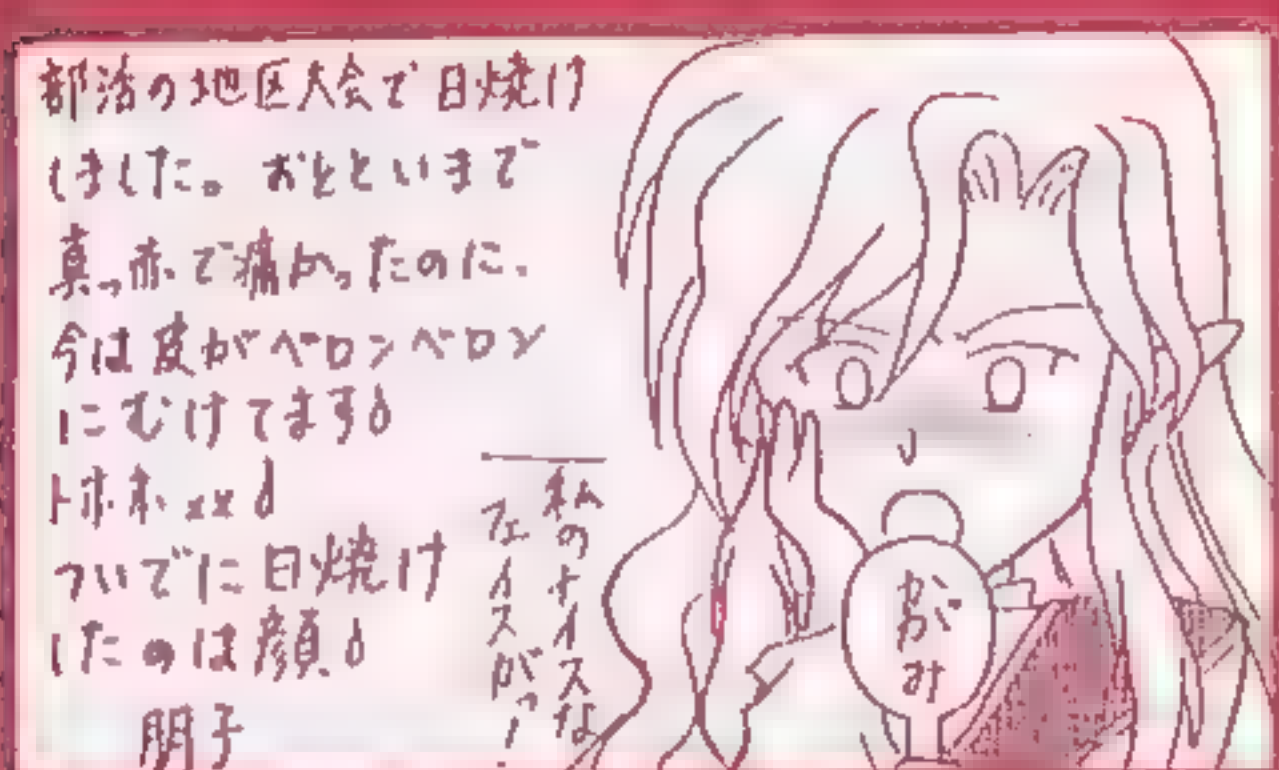 部活の地区大会で日焼け
しました。おとといまで
真っ赤で痛かったのに、
今は皮がベロンベロン
にむけてます
トホホ
ついでに日焼け
したのは顔
朋子
私のナイスな
フェイスがっ!
かがみ